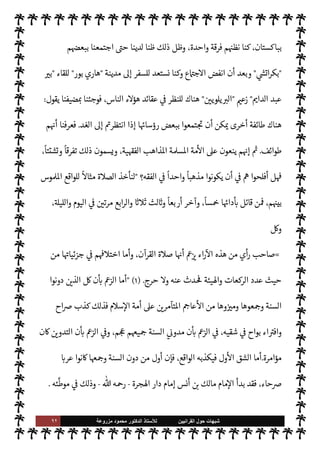 بباكستان، كنا نظنهم فرقة واحدة، وظل ذلك ظنا لدينا حتى اجتمعنا ببعضهم
"بكراتشي" وبعد أن انفض الاجتماع وكنا نستعد للسفر إلى مدينة "هاري بور" للقاء "بير
عبد الدايم" زعيم "البريلويين" هناك للنظر في عقائد هؤلاء الناس، فوجئنا بمضيفنا يقول:
هناك طائفة أخرى يمكن أن تجتمعوا ببعض رؤسائها إذا انتظرتم إلى الغد. فعرفنا أنهم
طوائف. ثم إنهم ينعون على الأمة المسلمة المذاهب الفقهية، ويسمون ذلك تفرقاً وتشتتاً،
فهل أفلحوا هم في أن يكونوا مذهباً واحداً في الفقه؟ "لنأخذ الصلاة مثالاً للواقع الملموس
بينهم، فمن قائل بأدائها خمساً، وآخر أربعاً وثالث ثلاثا والرابع مرتين في اليوم والليلة،
وكل
=صاحب رأي من هذه الآراء يزعم أنها صلاة القرآن، وأما اختلافهم في جزئياتها من
حيث عدد الركعات والهيئة فحدث عنه ولا حرج. (٢) "أما الزعم بأن كل الذين دونوا
السنة وجمعوها وميزوها من الأعاجم المتآمرين على أمة الإسلام فذلك كذب صراح
وافتراء بواح في شقيه، في الزعم بأن مدوني السنة جميعهم عجم، وفي الزعم بأن التدوين كان
مؤامرة.أما الشق الأول فيكذبه الواقع، فإن أول من دون السنة وجمعها كانوا عربا
صرحاء، فقد بدأ الإمام مالك بن أنس إمام دار الهجرة - رحمه الله - وذلك في موطّئه .
شبهات حول القرآنيين للأستاذ الدكتور محمود مزروعة